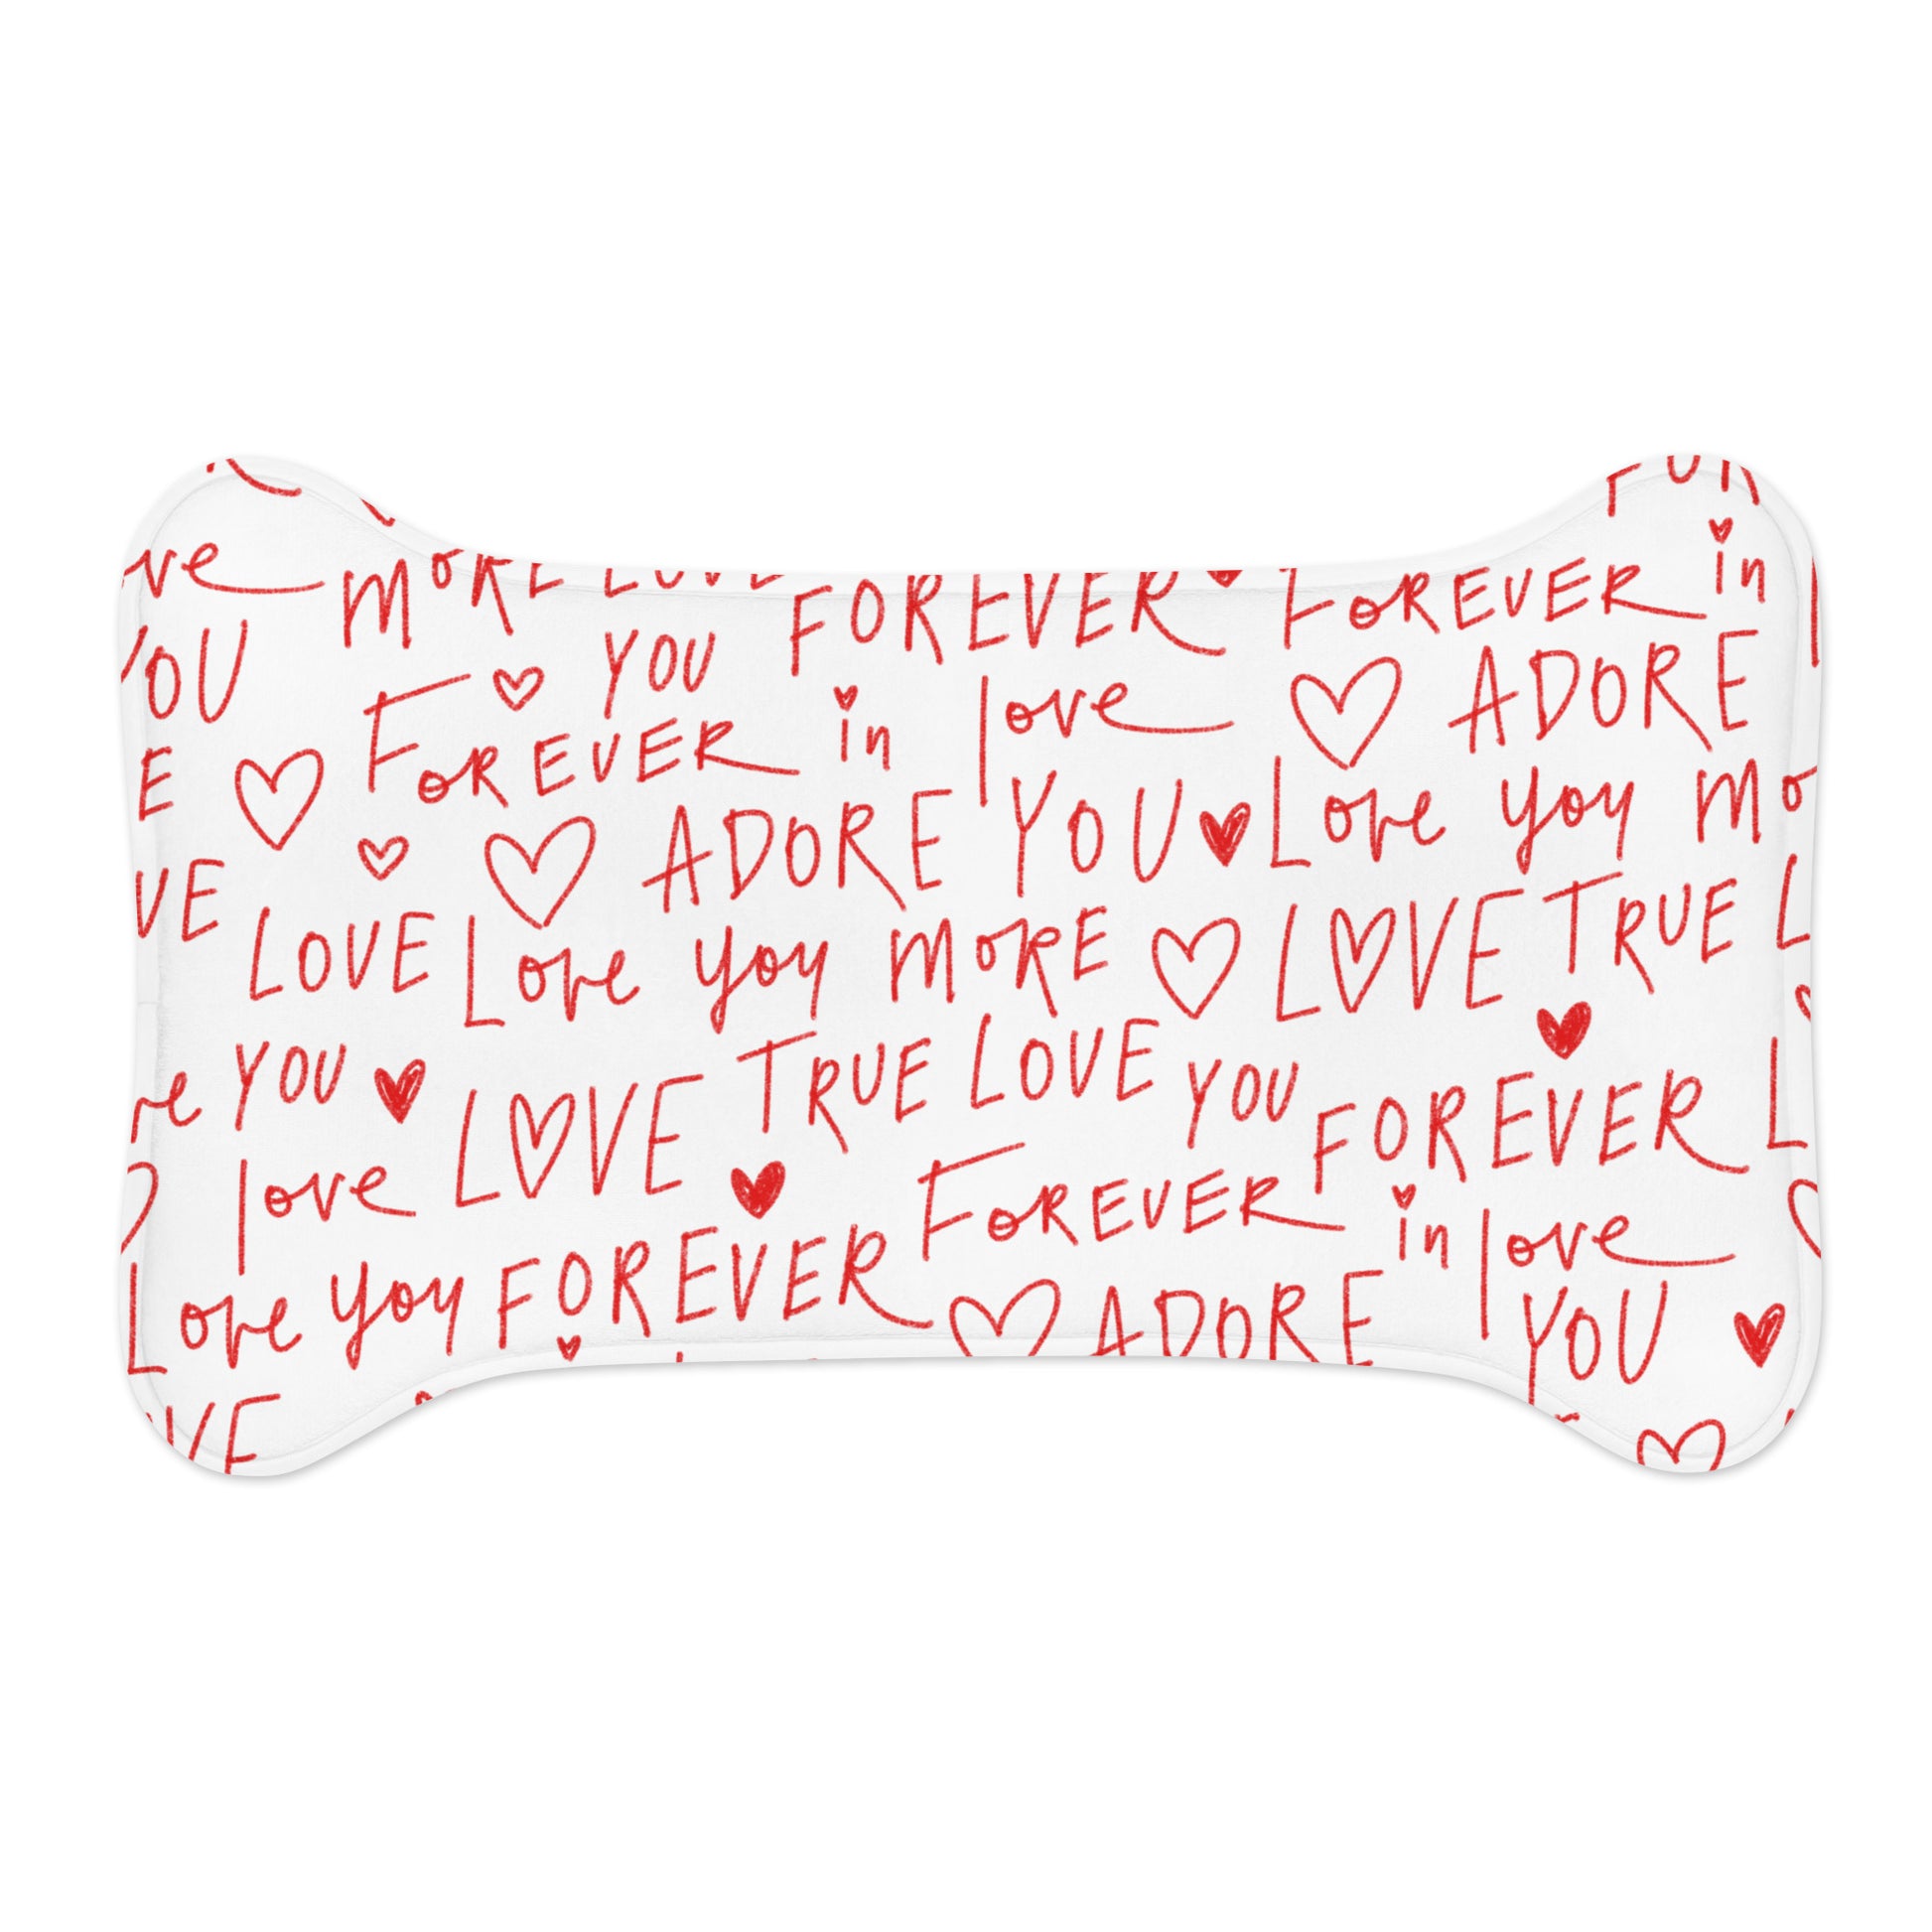 FOR
ove MORE LOVE FOREVER FOREVER in
YOU YOU love ADORE
E FOREVER in YOU Love you MO
VE ADORE TRUE L
LOVE Love you MORE LOVE
re YOU LOVE TRUE LOVE YOU FOREVER L
love FOREVER in love
Love you FOREVER ADORE YOU
VE